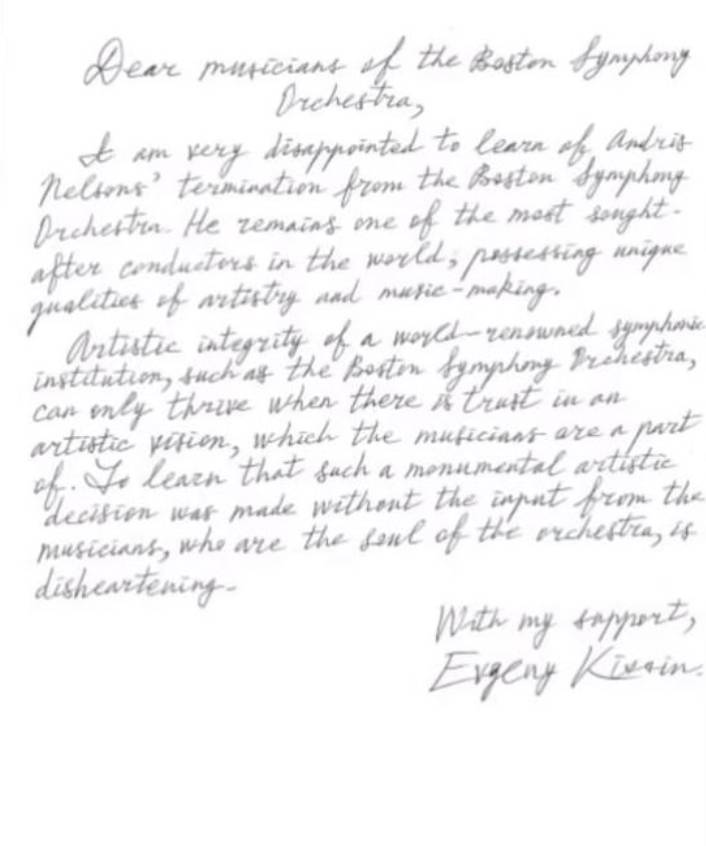 Dear musicians of the Boston Symphony
Orchestra,
I am very disappointed to learn of Andris
Nelsons' termination from the Boston Symphony
Orchestra. He remains one of the most sought-
after conductors in the world, possessing unique
qualities of artistry and music-making.
Artistic integrity of a world-renowned symphonic
institution, such as the Boston Symphony Orchestra,
can only thrive when there is trust in an
artistic vision, which the musicians are a part
of. To learn that such a monumental artistic
decision was made without the input from the
musicians, who are the soul of the orchestra, is
disheartening.
With my support,
Evgeny Kissin.